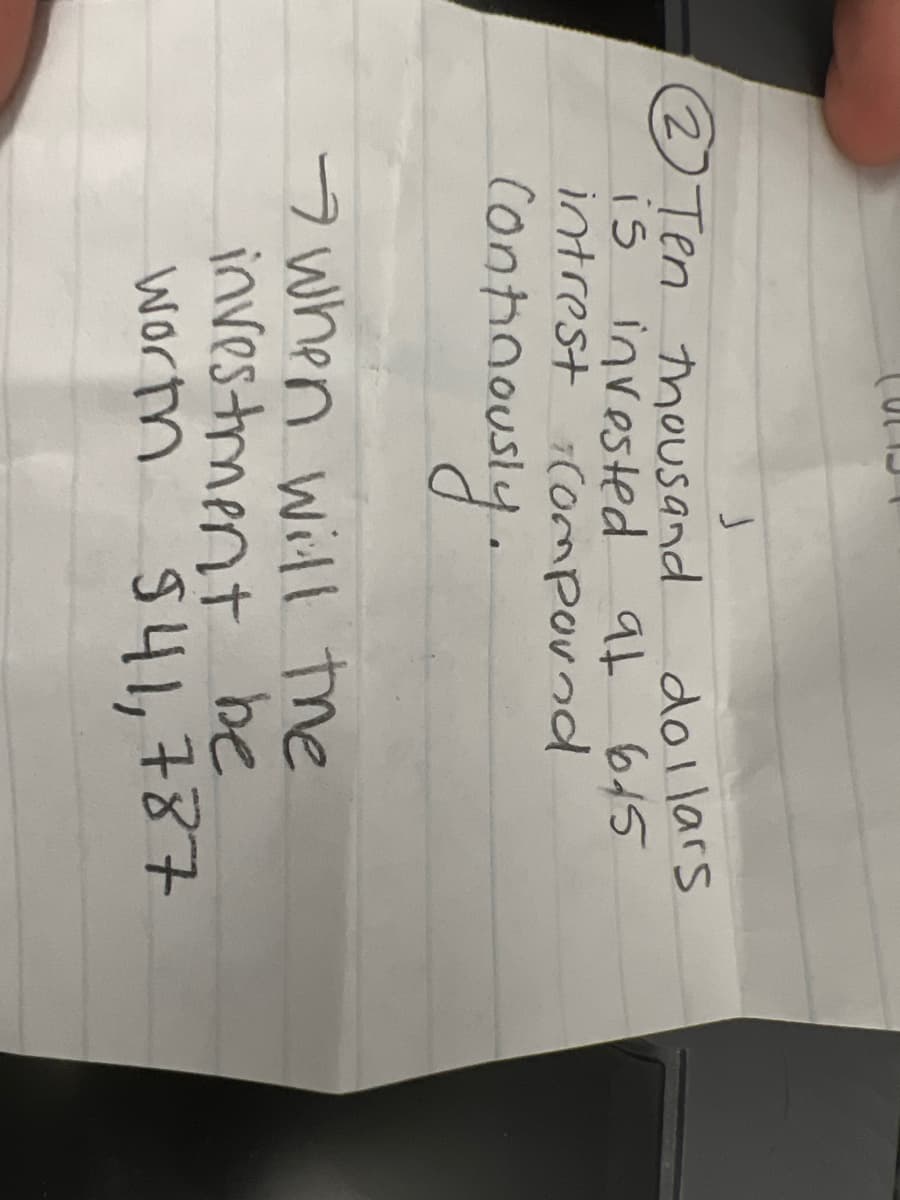 ② Ten thousand dollars
is invested at 6.15
intrest compound
continously.
→ When will the
investment be
worth $41,787